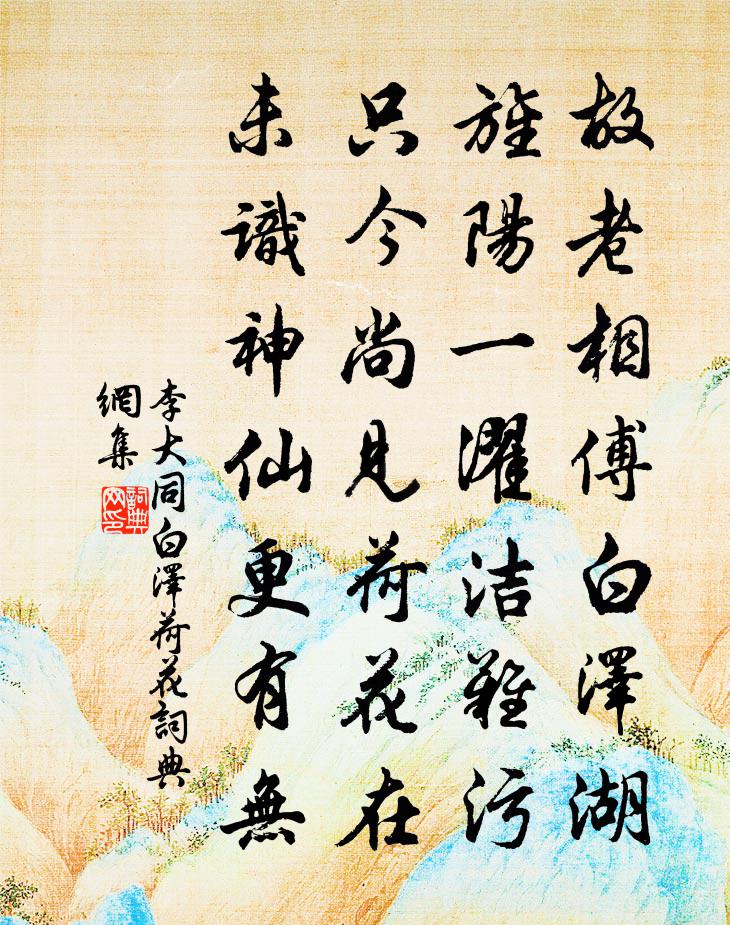 故老相傅白澤湖
旌陽一濯洁難污
只今尚見荷花在
未識神仙更有無
李大同白澤荷花詞典
網集
詞典
网印